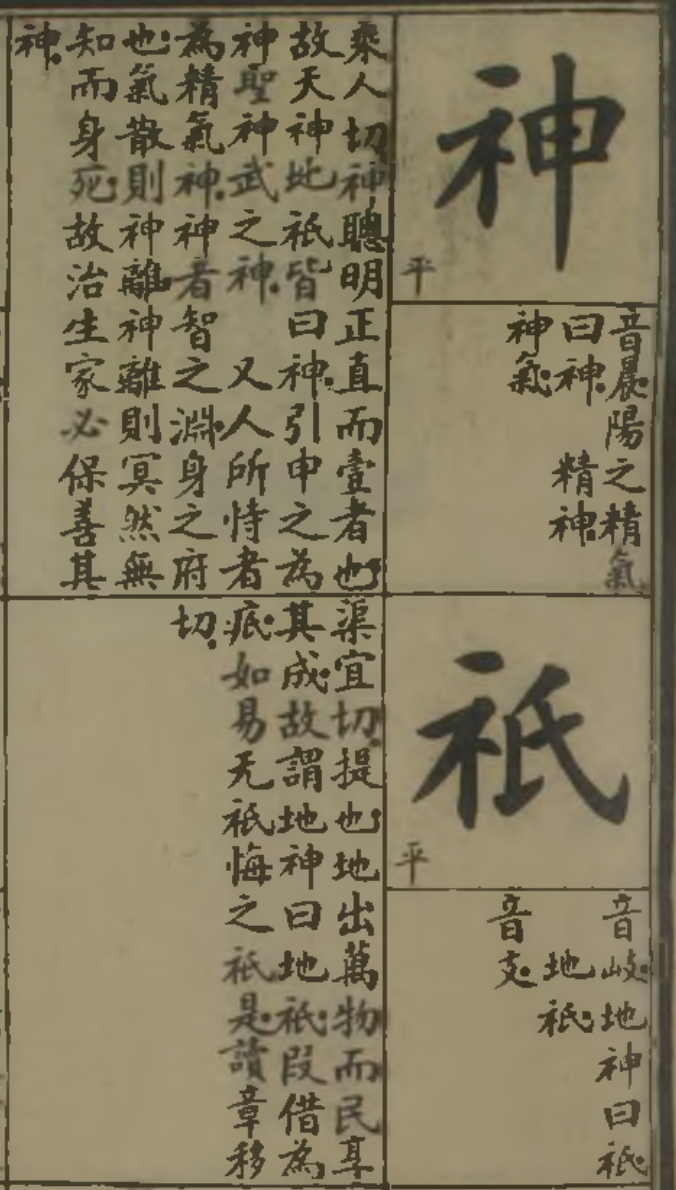 神
平
音晨陽之精氣
曰神 精
神氣 神
乘人切神聰明正直而壹者也
故天神地祇皆曰神引申之為
神聖神武之神 又人所恃者
為精氣神神者智之淵身之府
也氣散則神離神離則冥然無
知而身死故治生家必保善其
神
祇
平
音岐地神曰祇
地祇
音支
渠宜切提也地出萬物而民享
其成故謂地神曰地祇段借為
疧如易无祇悔之祇是讀章移
切